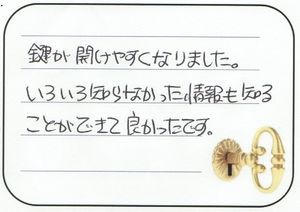 鍵が開けやすくなりました。
いろいろ知らなかった情報も知る
ことができて良かったです。